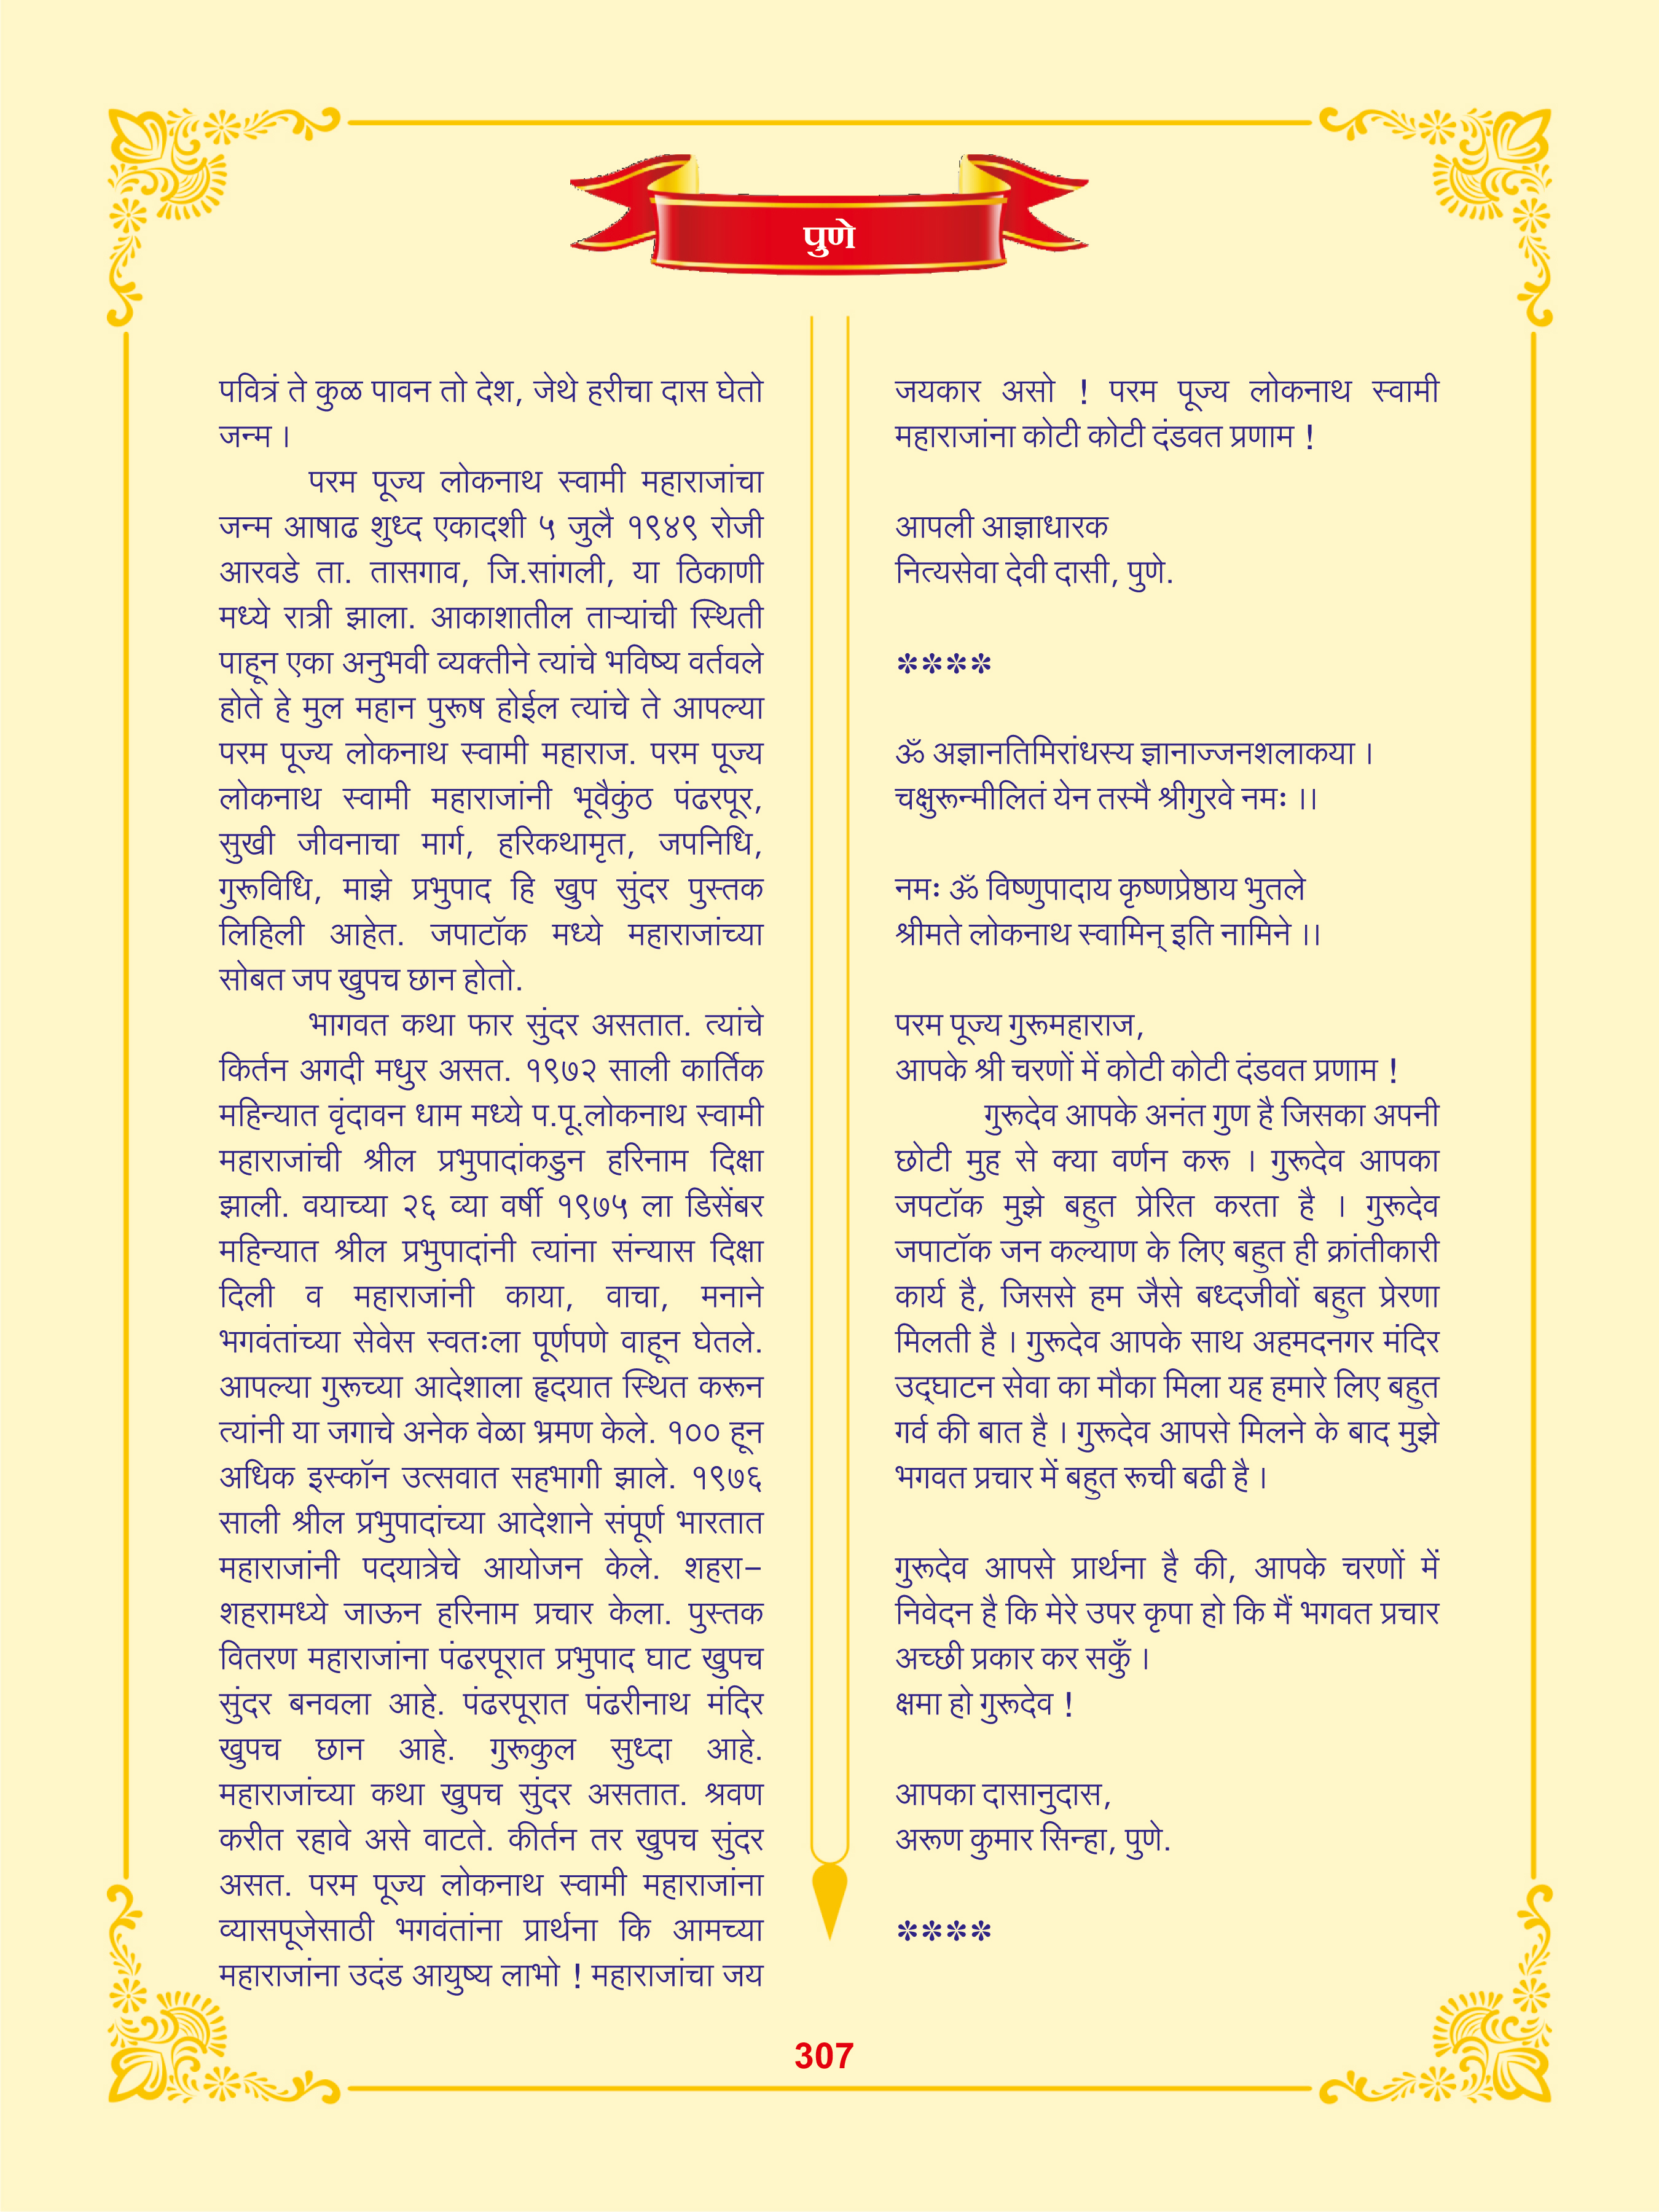 पुणे
पवित्रं ते कुळ पावन तो देश, जेथे हरीचा दास घेतो
जन्म ।
परम पूज्य लोकनाथ स्वामी महाराजांचा
जन्म आषाढ शुध्द एकादशी ५ जुलै १९४९ रोजी
आरवडे ता. तासगाव, जि.सांगली, या ठिकाणी
मध्ये रात्री झाला. आकाशातील ताऱ्यांची स्थिती
पाहून एका अनुभवी व्यक्तीने त्यांचे भविष्य वर्तवले
होते हे मुल महान पुरूष होईल त्यांचे ते आपल्या
परम पूज्य लोकनाथ स्वामी महाराज. परम पूज्य
लोकनाथ स्वामी महाराजांनी भूवैकुंठ पंढरपूर,
सुखी जीवनाचा मार्ग, हरिकथामृत, जपनिधि,
गुरूविधि, माझे प्रभुपाद हि खुप सुंदर पुस्तक
लिहिली आहेत. जपाटॉक मध्ये महाराजांच्या
सोबत जप खुपच छान होतो.
भागवत कथा फार सुंदर असतात. त्यांचे
किर्तन अगदी मधुर असत. १९७२ साली कार्तिक
महिन्यात वृंदावन धाम मध्ये प.पू.लोकनाथ स्वामी
महाराजांची श्रील प्रभुपादांकडुन हरिनाम दिक्षा
झाली. वयाच्या २६ व्या वर्षी १९७५ ला डिसेंबर
महिन्यात श्रील प्रभुपादांनी त्यांना संन्यास दिक्षा
दिली व महाराजांनी काया, वाचा, मनाने
भगवंतांच्या सेवेस स्वतःला पूर्णपणे वाहून घेतले.
आपल्या गुरूच्या आदेशाला हृदयात स्थित करून
त्यांनी या जगाचे अनेक वेळा भ्रमण केले. १०० हून
अधिक इस्कॉन उत्सवात सहभागी झाले. १९७६
साली श्रील प्रभुपादांच्या आदेशाने संपूर्ण भारतात
महाराजांनी पदयात्रेचे आयोजन केले. शहरा-
शहरामध्ये जाऊन हरिनाम प्रचार केला. पुस्तक
वितरण महाराजांना पंढरपूरात प्रभुपाद घाट खुपच
सुंदर बनवला आहे. पंढरपूरात पंढरीनाथ मंदिर
खुपच छान आहे. गुरूकुल सुध्दा आहे.
महाराजांच्या कथा खुपच सुंदर असतात. श्रवण
करीत रहावे असे वाटते. कीर्तन तर खुपच सुंदर
असत. परम पूज्य लोकनाथ स्वामी महाराजांना
व्यासपूजेसाठी भगवंतांना प्रार्थना कि आमच्या
महाराजांना उदंड आयुष्य लाभो ! महाराजांचा जय
जयकार असो ! परम पूज्य लोकनाथ स्वामी
महाराजांना कोटी कोटी दंडवत प्रणाम !
आपली आज्ञाधारक
नित्यसेवा देवी दासी, पुणे.
****
ॐ अज्ञानतिमिरांधस्य ज्ञानाज्जनशलाकया ।
चक्षुरून्मीलितं येन तस्मै श्रीगुरवे नमः ।।
नमः ॐ विष्णुपादाय कृष्णप्रेष्ठाय भुतले
श्रीमते लोकनाथ स्वामिन् इति नामिने ।।
परम पूज्य गुरूमहाराज,
आपके श्री चरणों में कोटी कोटी दंडवत प्रणाम !
गुरूदेव आपके अनंत गुण है जिसका अपनी
छोटी मुह से क्या वर्णन करू । गुरूदेव आपका
जपटॉक मुझे बहुत प्रेरित करता है । गुरूदेव
जपाटॉक जन कल्याण के लिए बहुत ही क्रांतीकारी
कार्य है, जिससे हम जैसे बध्दजीवों बहुत प्रेरणा
मिलती है । गुरूदेव आपके साथ अहमदनगर मंदिर
उद्‌घाटन सेवा का मौका मिला यह हमारे लिए बहुत
गर्व की बात है । गुरूदेव आपसे मिलने के बाद मुझे
भगवत प्रचार में बहुत रूची बढी है ।
गुरूदेव आपसे प्रार्थना है की, आपके चरणों में
निवेदन है कि मेरे उपर कृपा हो कि मैं भगवत प्रचार
अच्छी प्रकार कर सकुँ ।
क्षमा हो गुरूदेव !
आपका दासानुदास,
अरूण कुमार सिन्हा, पुणे.
****
307